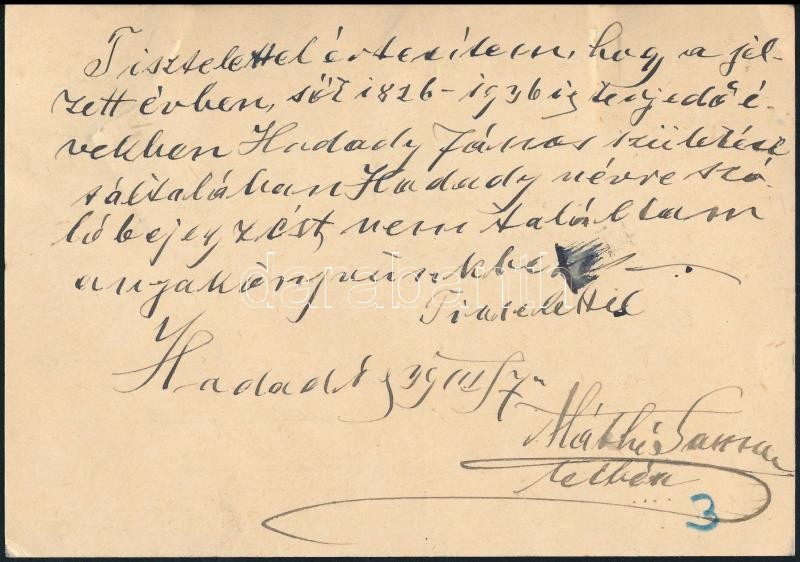 Tisztelettel értesitem, hogy a jel-
zett évben, sőt 1826-1936 ig terjedő é-
vekben Hadady János születést
s általában Hadady névre szó-
ló bejegyzést, nem találtam
anyakönyvünkbe
Tisztelettel
Hadad
Máthé
3
darabanth.com